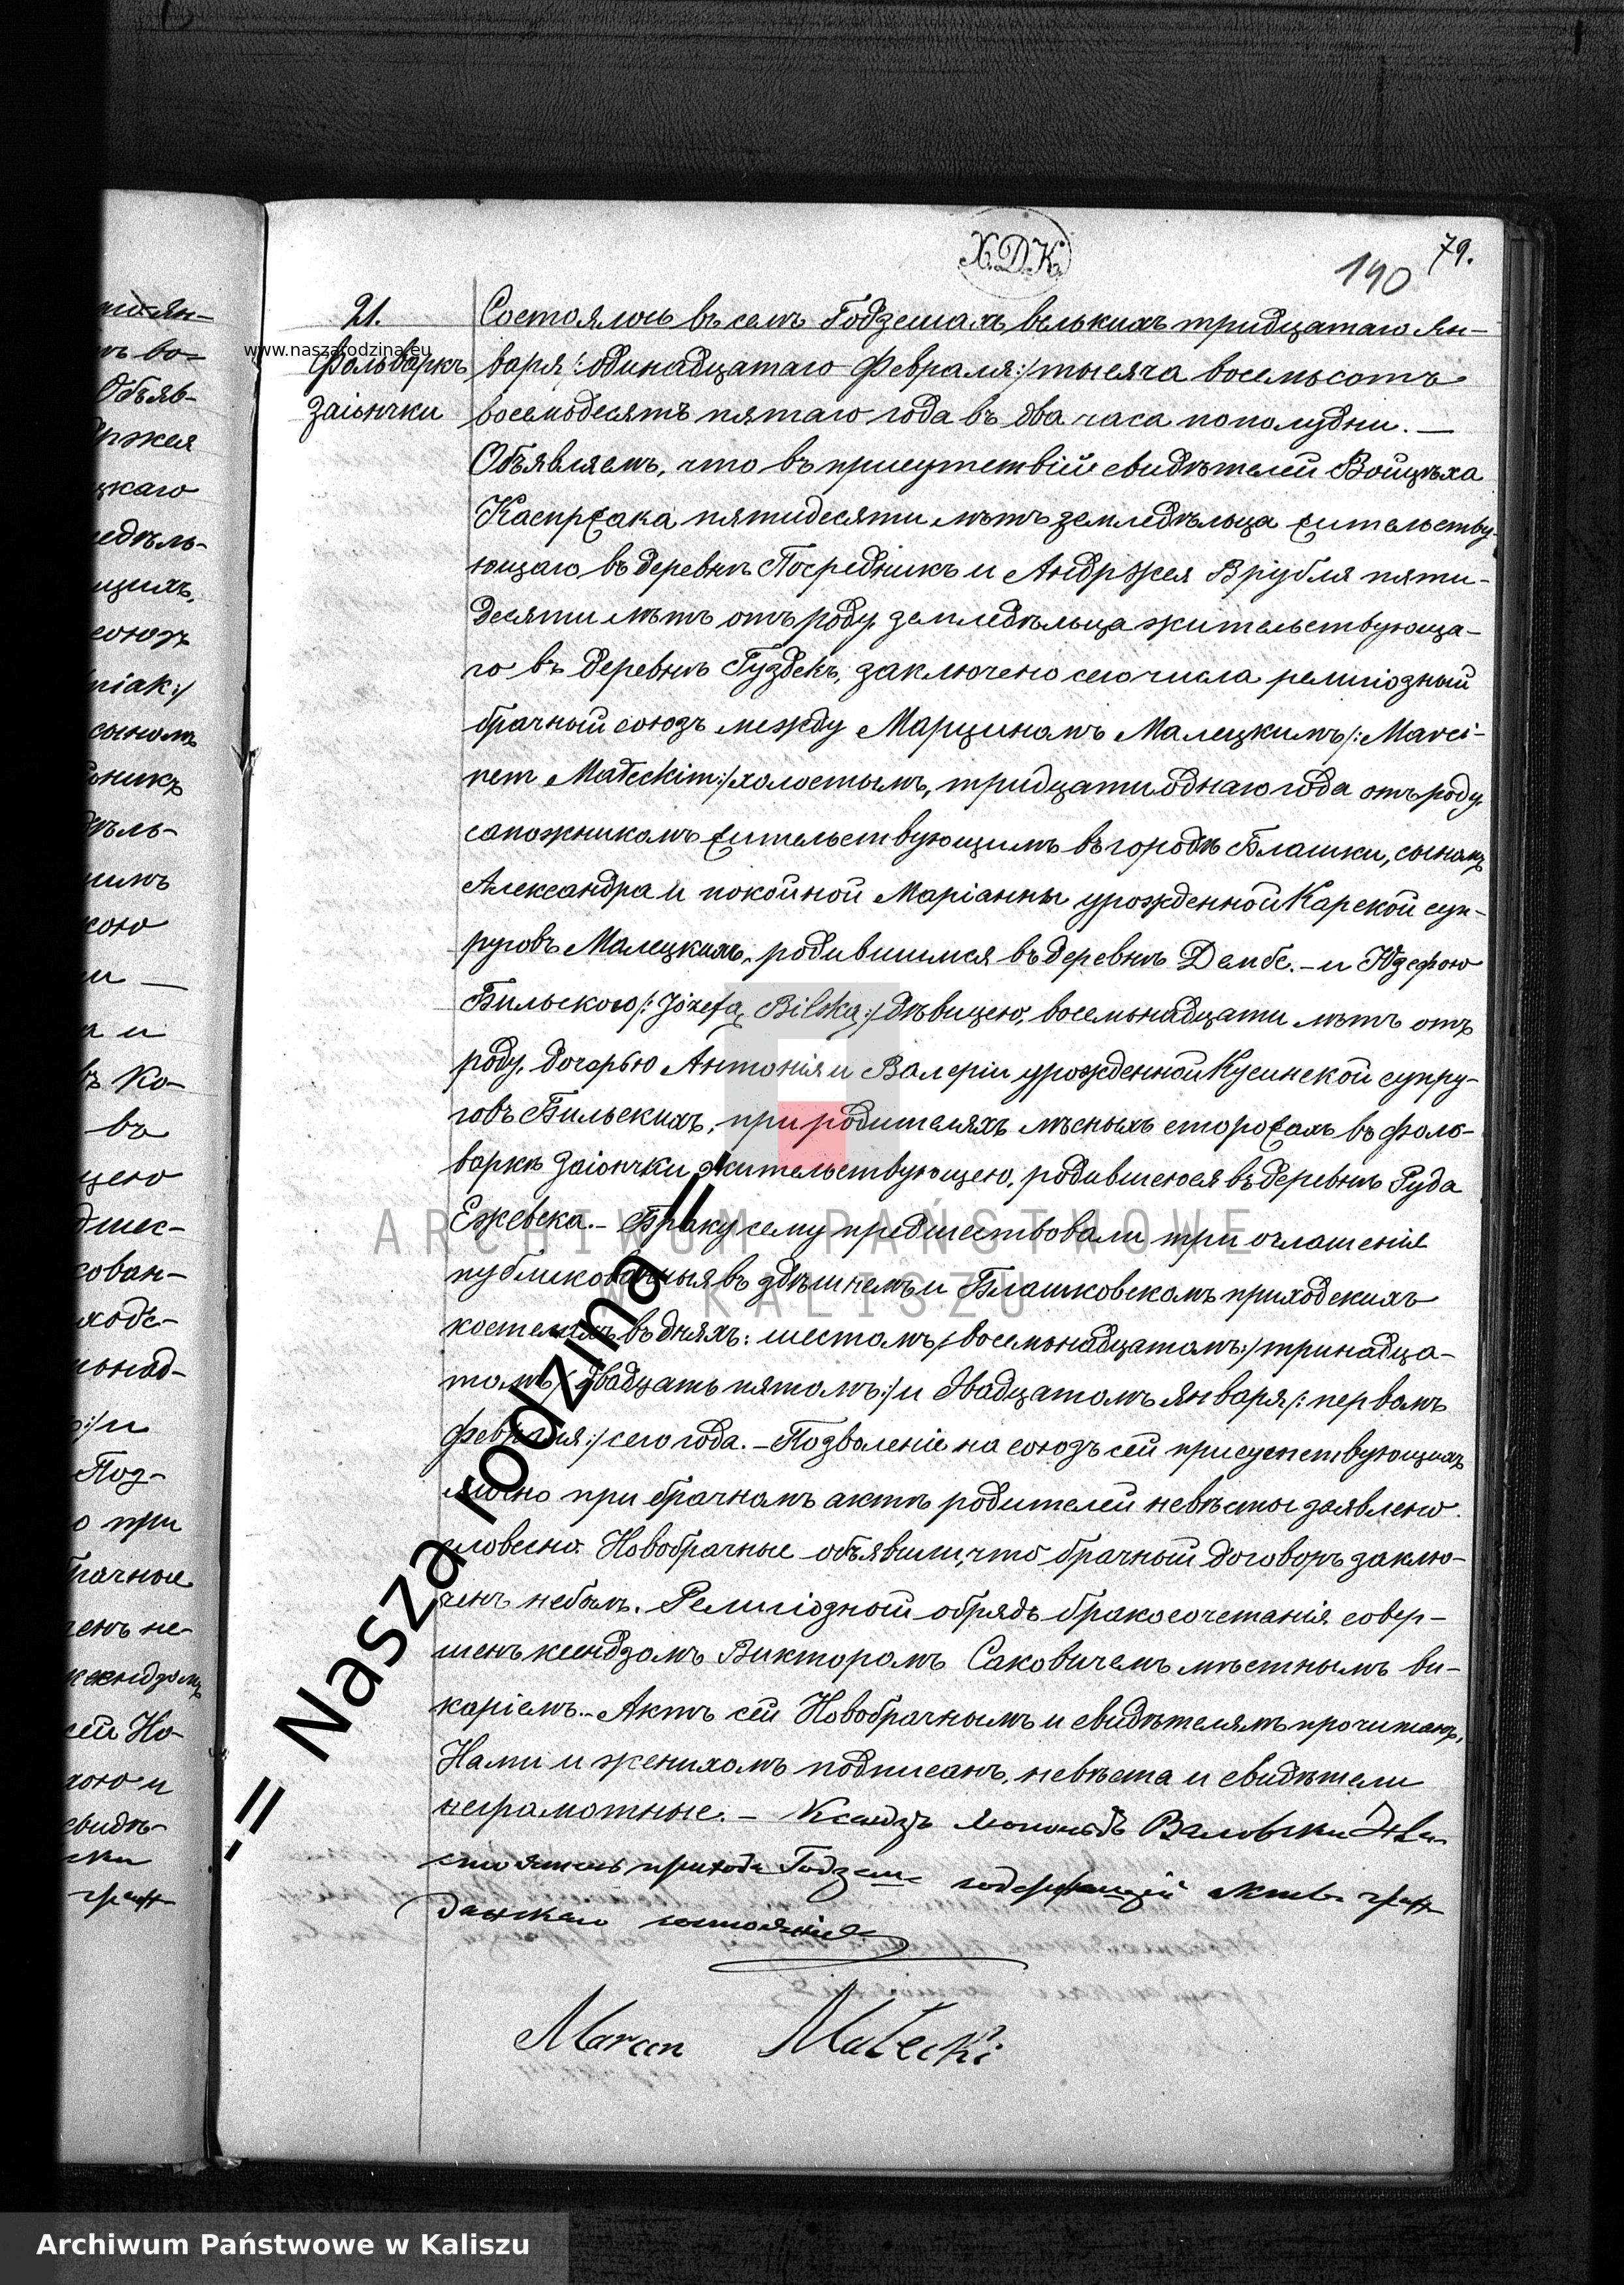 Х.Д.К.
79.
190
21.
Фольваркъ
Заіончки
www.naszarodzina.eu
Состоялось въ селѣ Годзешахъ велькихъ тридцатаго Ян-
варя /:одинадцатаго Февраля:/ тысяча восемьсотъ
восемьдесятъ пятаго года въ два часа пополудни. —
Объявляемъ, что въ присутствіи свидѣтелей Войцѣха
Каспржака пятидесяти лѣтъ земледѣльца жительству-
ющаго въ деревнѣ Посредникъ и Андржея Врубля пяти-
десяти лѣтъ отъ роду земледѣльца жительствующа-
го въ деревнѣ Гуздекъ, заключено сего числа религіозный
брачный союзъ между Марциномъ Малецкимъ /:Marci-
nem Małeckim:/ холостымъ, тридцати однаго года отъ роду
сапожникомъ жительствующимъ въ городѣ Блашки, сыномъ
Александра и покойной Маріанны урожденной Карской суп-
руговъ Малецкихъ, родившимся въ деревнѣ Дембе. – и Юзефою
Бильскою /:Józefą Bilską:/ дѣвицею, восемьнадцати лѣтъ отъ
роду, дочерью Антонія и Валеріи урожденной Кусинской супру-
говъ Бильскихъ, при родителяхъ лѣсныхъ сторожахъ въ фоль-
варкѣ Заіончки жительствующею, родившеюся въ деревнѣ Руда
Ежевска. – Браку сему предшествовали три оглашенія
публикованныя въ здѣшнемъ и Блашковскомъ приходскихъ
костелахъ въ дняхъ: шестомъ /:восемьнадцатомъ:/ тринадца-
томъ /:двадцать пятомъ:/ и двадцатомъ января /:первомъ
февраля:/ сего года. – Позволеніе на союзъ сей присуствующихъ
лично при брачномъ актѣ родителей невѣсты заявлено
словесно. Новобрачные объявили, что брачный договоръ заклю-
ченъ небылъ. Религіозный обрядъ бракосочетанія совер-
шенъ ксендзомъ Викторомъ Саковичемъ мѣстнымъ ви-
каріемъ. – Актъ сей Новобрачнымъ и свидѣтелямъ прочитанъ,
Нами и женихомъ подписанъ, невѣста и свидѣтели
неграмотные. – Ксендзъ Валовски На-
стоятель прихода Годзеш содержащій Акты граж
данскаго состоянія
Marcin Małecki
-= Nasza rodzina =-
ARCHIWUM PAŃSTWOWE
W KALISZU
Archiwum Państwowe w Kaliszu